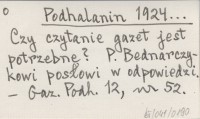 o
Podhalanin 1924...
Czy czytanie gazet jest
potrzebne? P. Bednarczy-
kowi posłowi w odpowiedzi.
– Gaz. Podh. 12, nr 52.